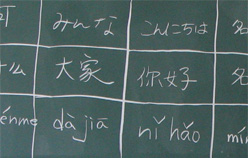 可 みんな こんにちは 名
什么 大家 你好 名
énme dà jiā nǐ hǎo